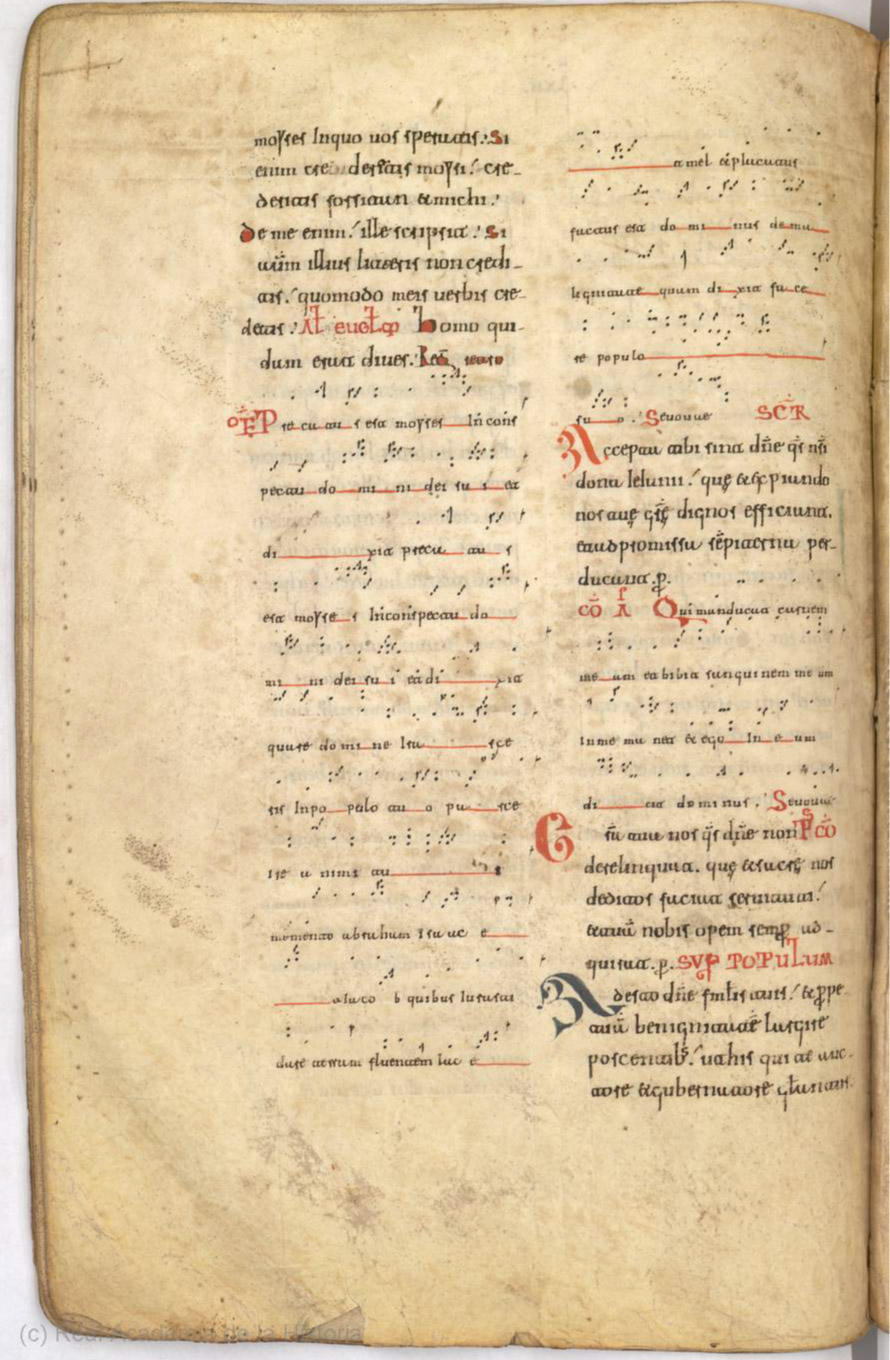 moyses Inquo uos speratis. Si
enim crederetis moysi. cre-
deretis forsitan & michi.
De me enim. ille scripsit. Si
autem illius litteris non credi-
tis. quomodo meis uerbis cre-
detis. Homo qui-
dam erat diues.
OFP recatus est moyses In cons
pectu domini dei sui et
dixit precatus
est moyses In conspectu do
mini dei sui et dixit
quare domine Ira sce
ris In populo tuo parce
ire anime tue
memento abraham Isaac e
t iaco b quibus Iurasti
dare terram fluentem lac e
t mel & placatus
factus est dominus de ma
lignitate quam dixit face
re populo
suo. Seuouae SCR
Accepta tibi sint dñe qs nr̄i
dona Ieiunii. que & expiando
nos tue gr̄e dignos efficiant.
& ad promissa sepiterna per-
ducant. p.
CO A Qui manducat carnem
meam et bibit sanguinem meum
In me manet & ego In eum
dicit dominus. Seuouae
Tui nos qs dñe non PCO
derelinquat. que & sacris nos
deditos faciat seruitati.
& tuā nobis opem semp ad-
quirat. p. SUP POPULUM
Adesto dñe fm̄lis tuis. & ppe
tuā benignitate largire
poscentib. ut his qui te auc-
tore & gubernatore gloriant